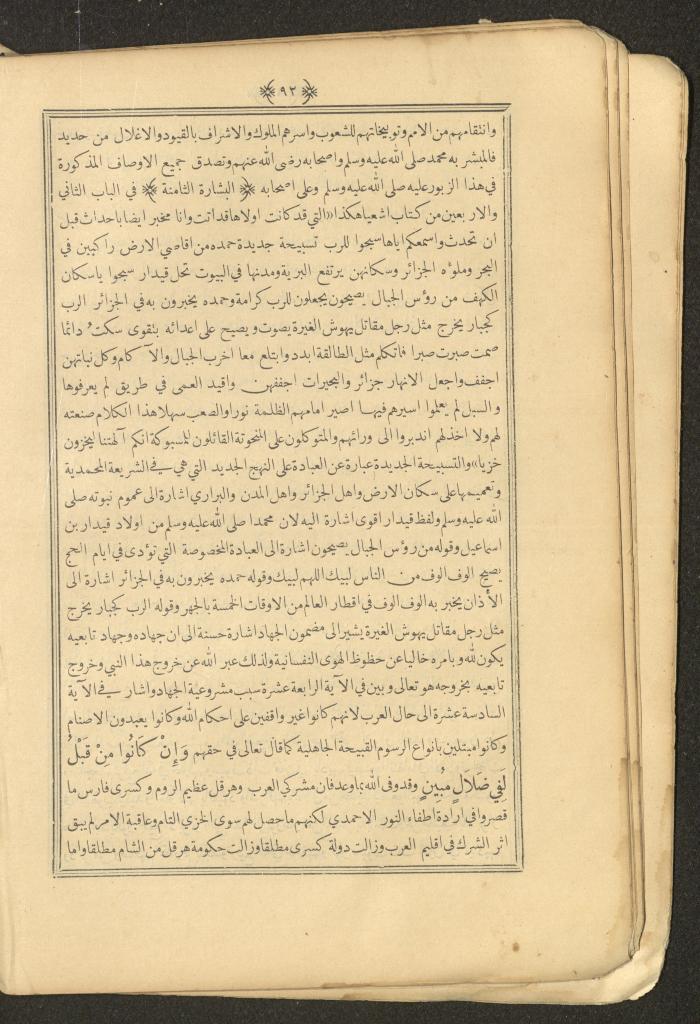 ٩٢
وانتقامهم من الامم وتوبيخاتهم للشعوب واسرهم الملوك والاشراف بالقيود والاغلال من حديد
فالمبشر به محمد صلى الله عليه وسلم واصحابه رضى الله عنهم وتصدق جميع الاوصاف المذكورة
في هذا الزبور عليه صلى الله عليه وسلم وعلى اصحابه ﴿ البشارة الثامنة ﴾ في الباب الثاني
والاربعين من كتاب اشعيا هكذا «التي قد كانت اولا هاقد اتت وانا مخبر ايضا باحداث قبل
ان تحدث واسمعكم اياها سبحوا للرب تسبيحة جديدة حمده من اقاصي الارض راكبين في
البحر وملؤه الجزائر وسكانهن يرتفع البرية ومدنها في البيوت تحل قيدار سبحوا ياسكان
الكهف من رؤس الجبال يصيحون يجعلون للرب كرامة وحمده يخبرون به في الجزائر الرب
كجبار يخرج مثل رجل مقاتل يهوش الغيرة يصوت ويصيح على اعدائه يتقوى سكت دائما
صمت صبرت صبرا فاتكلم مثل الطالقة ابدد وابتلع معا اخرب الجبال والآكام وكل نباتهن
اجفف واجعل الانهار جزائر والبحيرات اجففهن واقيد العمى في طريق لم يعرفوها
والسبل لم يعلموا اسيرهم فيها اصير امامهم الظلمة نورا والصعب سهلا هذا الكلام صنعته
لهم ولا اخذلهم اندبروا الى ورائهم والمتوكلون على المنحوتة القائلون للمسبوكة انكم آلهتنا ليخزون
خزيا» والتسبيحة الجديدة عبارة عن العبادة على النهج الجديد التي هي في الشريعة المحمدية
وتعميمها على سكان الارض واهل الجزائر واهل المدن والبراري اشارة الى عموم نبوته صلى
الله عليه وسلم ولفظ قيدار اقوى اشارة اليه لان محمدا صلى الله عليه وسلم من اولاد قيدار بن
اسماعيل وقوله من رؤس الجبال يصيحون اشارة الى العبادة المخصوصة التي تؤدى في ايام الحج
يصيح الوف الوف من الناس لبيك اللهم لبيك وقوله حمده يخبرون به في الجزائر اشارة الى
الأذان يخبر به الوف الوف في اقطار العالم من الاوقات الخمسة بالجهر وقوله الرب كجبار يخرج
مثل رجل مقاتل يهوش الغيرة يشير الى مضمون الجهاد اشارة حسنة الى ان جهاده وجهاد تابعيه
يكون لله وبامره خاليا عن حظوظ الهوى النفسانية ولذلك عبر الله عن خروج هذا النبي وخروج
تابعيه بخروجه هو تعالى وبين في الآية الرابعة عشرة سبب مشروعية الجهاد واشار في الآية
السادسة عشرة الى حال العرب لانهم كانوا غير واقفين على احكام الله وكانوا يعبدون الاصنام
وكانوا مبتلين بانواع الرسوم القبيحة الجاهلية كما قال تعالى في حقهم وَإِنْ كَانُوا مِنْ قَبْلُ
لَفِي ضَلَالٍ مُبِينٍ وقد وفى الله بما وعد فان مشركي العرب وهرقل عظيم الروم وكسرى فارس ما
قصروا في ارادة اطفاء النور الاحمدي لكنهم ما حصل لهم سوى الخزي التام وعاقبة الامر لم يبق
اثر الشرك في اقليم العرب وزالت دولة كسرى مطلقا وزالت حكومة هرقل من الشام مطلقا واما